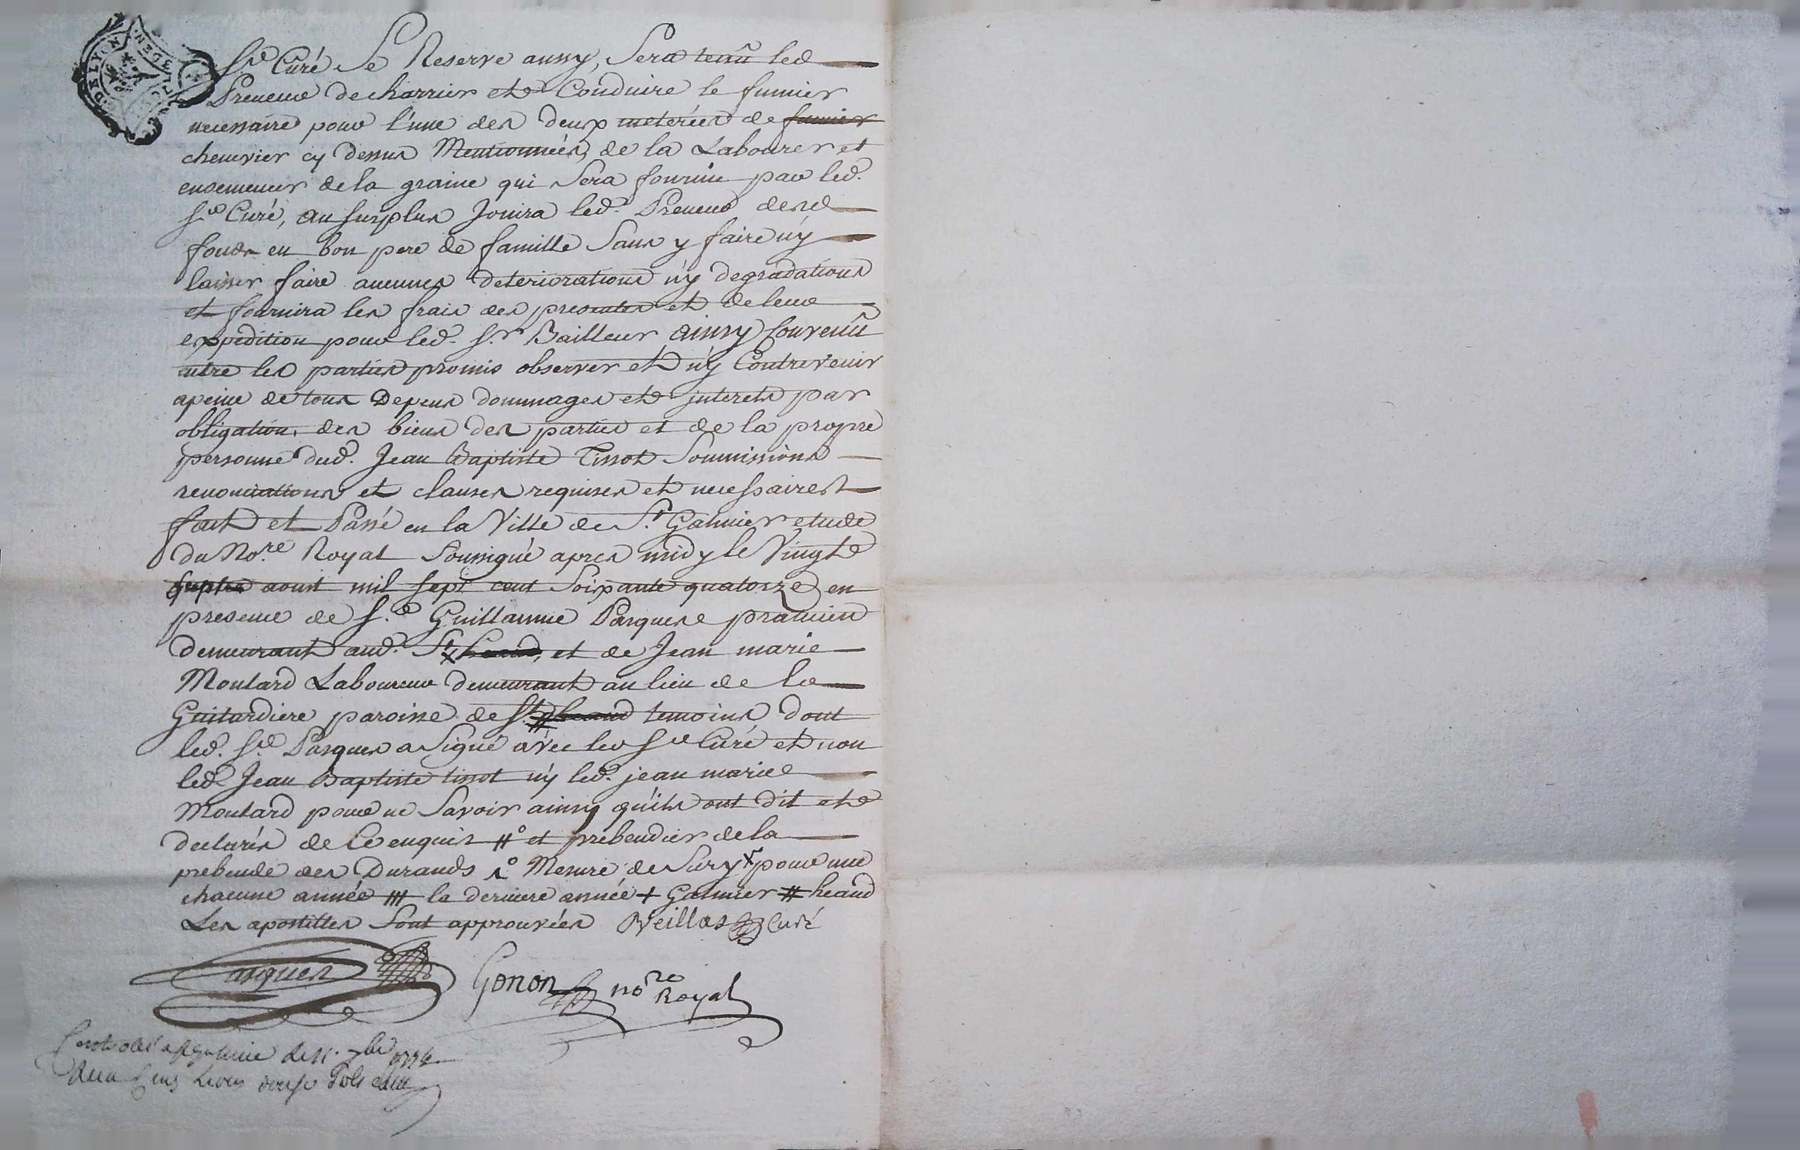 Sr. Curé Se Reserve aussy, Sera tenû led.
Preneur de charrier et Conduire le fumier
necessaire pour l'une des deux meterées de fumier
chenevier cy dessus Mentionnées, de la Labourer et
ensemencer de la graine qui Sera fournie par led.
Sr. Curé, au surplus Jouira led. Preneur desd.
fonds en bon pere de famille Sans y faire n'y
laisser faire aucunes deteriorations n'y degradations
et fournira les frais des presentes et de leur
expedition pour led. Sr. Bailleur ainsy Convenû
entre les parties promis observer et n'y Contrevenir
apeine de tous Depens dommages et interets par
obligation des biens des parties et de la propre
personne dud. Jean Baptiste Tissot Soumissions
renonciations et clauses requises et necessaires
fait et Passé en la Ville de St. Galmier etude
du Nore. Royal Soussigné apres midy le Vingt
septie aoust mil sept cent Soixante quatorze en
presence de Sr. Guillaume Pasques praticien
demeurant aud. St. heand, et de Jean marie
Moulard Laboureur demeurant au lieu de la
Guitardiere paroisse de St. heand temoins dont
led. Sr. Pasques a Signé avec led Sr Curé et non
led. Jean Baptiste tissot n'y led. jean marie
Moulard pour ne Savoir ainsy qu'ils ont dit et
declarés de Ce enquis #° et prebendier de la
prebende des Durands 1° Mesure de Sury x pour une
chacune année #| la derniere année + Galmier # heand
Les apostilles Sont approuvées Veillas Curé
Pasques Gonon nore Royal
Controlé a St Galmier le 11. 7bre 1774
Recu livres douze Sols